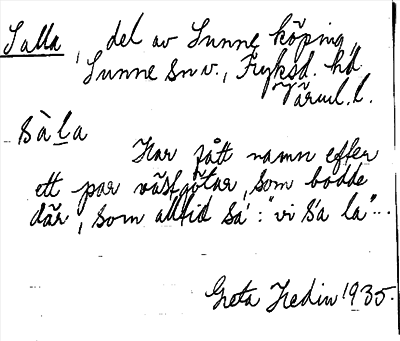 Salla, del av Sunne köping,
Sunne sn v., Fryksd. hd
Värml. l.
Sàla
Har fått namn efter
ett par västgötar, som bodde
där, som alltid sa: "vi sa la"...
Greta Hedin 1935.